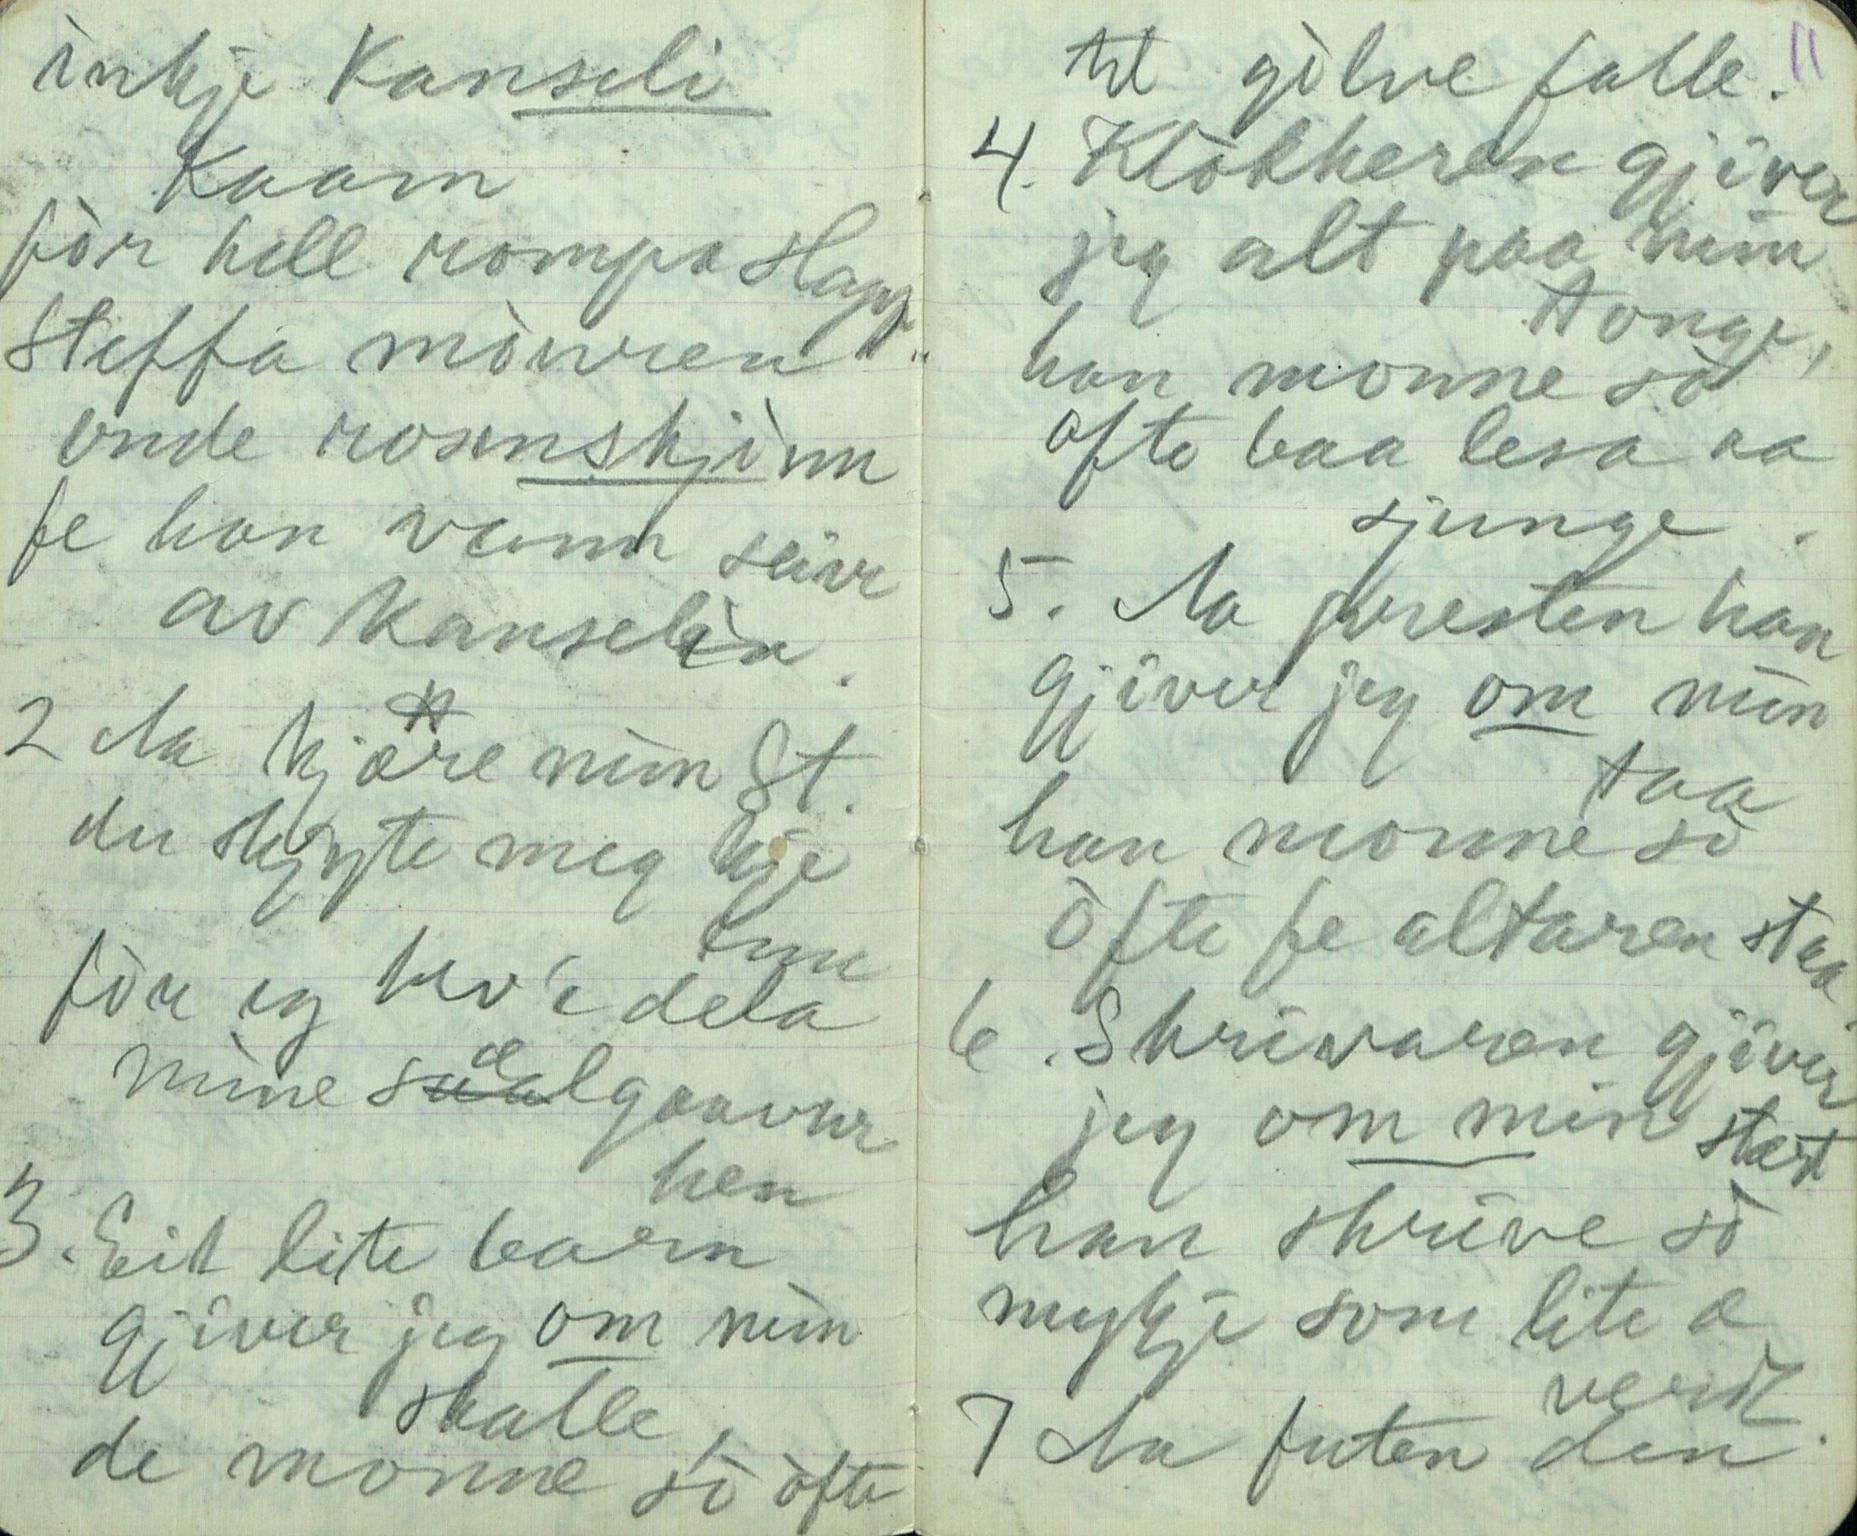 inkje Kanseli
Kaam
fòr hell rompa slapp
Steffa mòwren
onde rosenskjinn
fe han vann seive
av Kanselia.
2 Aa kjære min St.
du skyte meg kje
enn
fòr eg hev'e dela
mine sælgaaver
hen
3. Eit lite barn
gjiver jeg om min
skalle,
de monne sò òfte
11
til gilve falle.
4. Klòkkeren gjiver
jeg alt paa min
tonge,
han monne sò
ofte baa lesa aa
sjunge.
5. Aa presten han
gjiver jeg om min
taa
han monne sò
òfte fe altaren staa.
6. Skrivaren gjiver
jeg om min stært
han skrive sò
mykje som lite æ
verdt.
7 Aa futen den